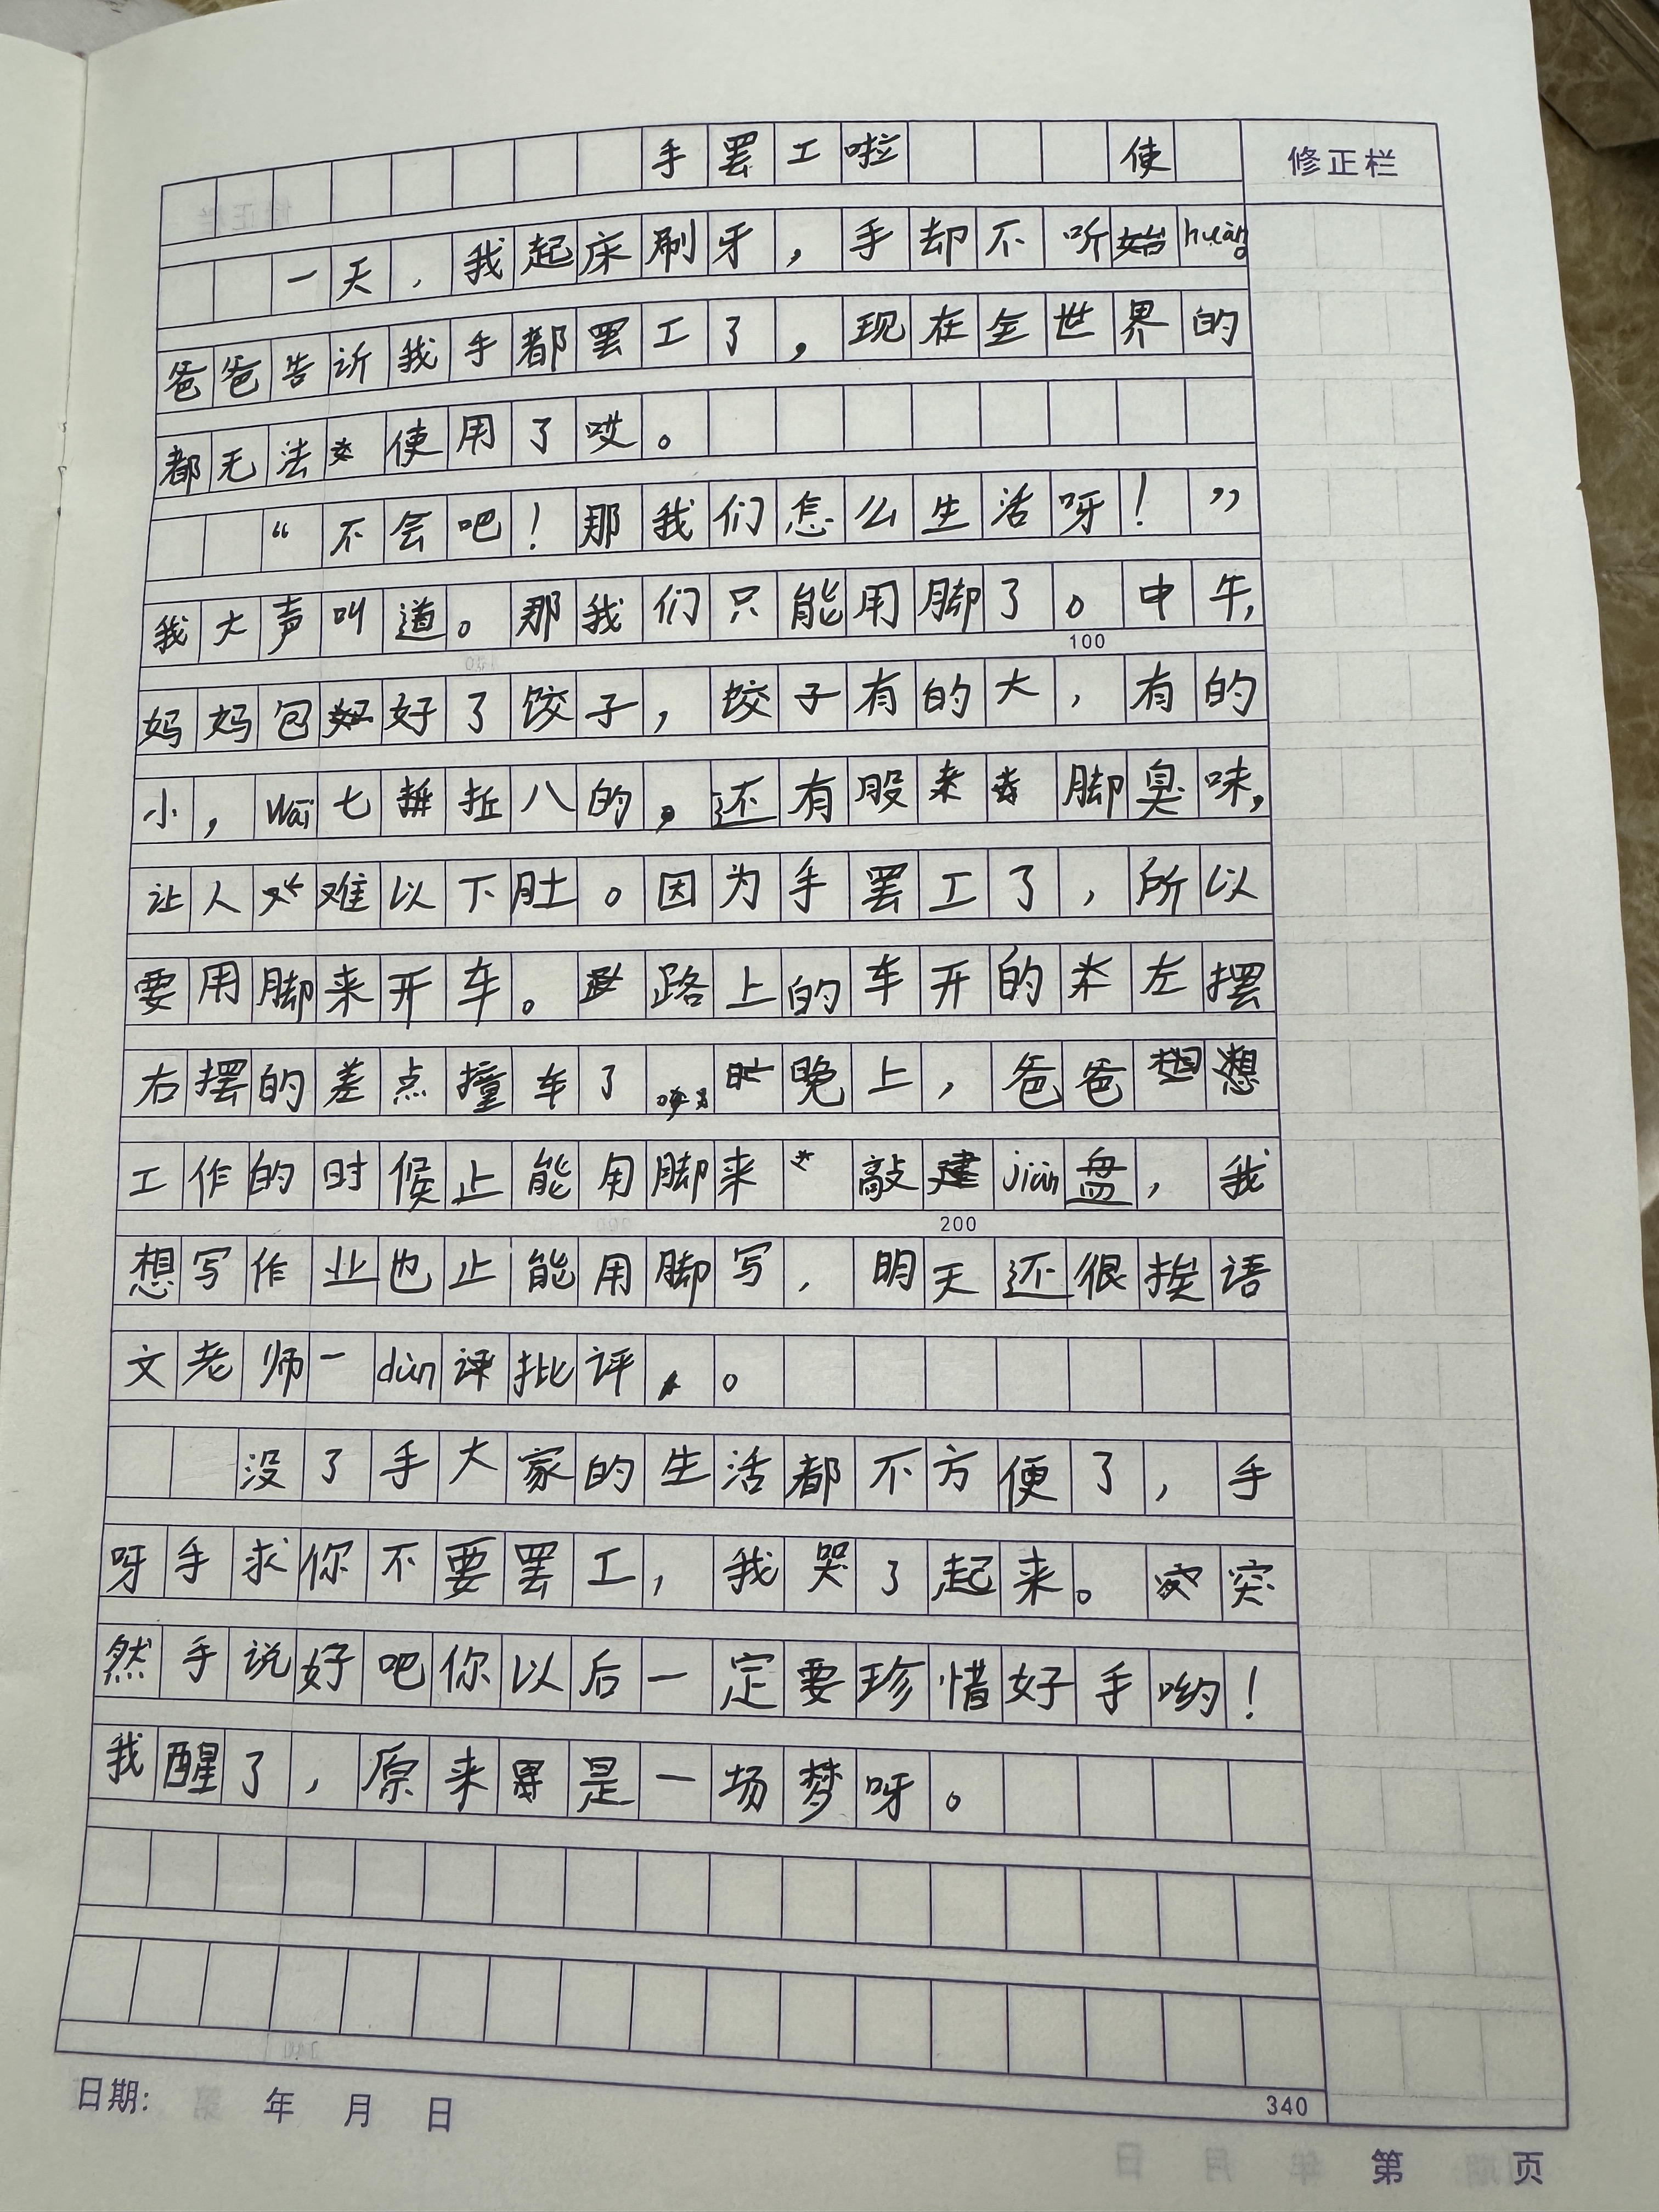 手罢工啦 使
修正栏
一天,我起床刷牙,手却不听 huàng
爸爸告诉我手都罢工了,现在全世界的
都无法使用了哎。
“不会吧!那我们怎么生活呀!”
我大声叫道。那我们只能用脚了。中午,
100
妈妈包好了饺子,饺子有的大,有的
小,wāi七扭八的,还有股脚臭味,
让人难以下肚。因为手罢工了,所以
要用脚来开车。路上的车开的左摆
右摆的差点撞车了 晚上,爸爸想
工作的时候止能用脚来敲jiàn盘,我
200
想写作业也止能用脚写,明天还很挨语
文老师一dùn批评。
没了手大家的生活都不方便了,手
呀手求你不要罢工,我哭了起来。突
然手说好吧你以后一定要珍惜好手哟!
我醒了,原来是一场梦呀。
340
日期: 年 月 日
第 页